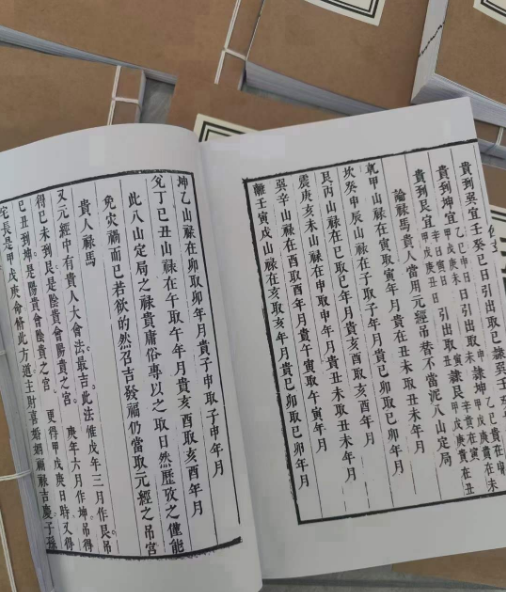 貴到巽宜壬癸巳日引出取巳隸巽
貴到坤宜引出取未申隸坤
貴到艮宜引出取丑寅隸艮甲戊庚貴在丑
論祿馬貴人當用元經吊替不當泥八山定局
乾甲山祿在寅取寅年月貴在丑未取丑未年月
坎癸申辰山祿在子取子年月貴巳卯取巳卯年月
艮丙山祿在巳取巳年月貴亥酉取亥酉年月
震庚亥未山祿在申取申年月貴丑未取丑未年月
巽辛山祿在酉取酉年月貴午寅取午寅年月
離壬寅戌山祿在亥取亥年月貴巳卯取巳卯年月
坤乙山祿在卯取卯年月貴子申取子申年月
兌丁巳丑山祿在午取午年月貴亥酉取亥酉年月
此八山定局之祿貴庸俗專以之取日然歷攷之僅能
免灾禍而已若欲的然召吉發福仍當取元經之吊宮
貴人祿馬
又元經中有貴人大會法最吉此法惟戊年三月作艮吊
得己未到艮是陰貴會陽貴之宮庚年六月作坤吊得
己丑到坤是陽貴會陰貴之宮更得甲戊庚日時又得
宅長是甲戊庚命脩此方道主財喜婚姻福祿吉慶子孫